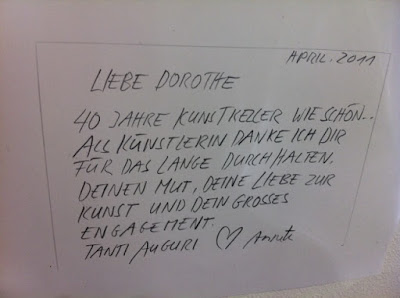 APRIL. 2011
LIEBE DOROTHE
40 JAHRE KUNSTKELLER WIE SCHÖN..
ALL KÜNSTLERIN DANKE ICH DIR
FÜR DAS LANGE DURCHHALTEN.
DEINEN MUT, DEINE LIEBE ZUR
KUNST UND DEIN GROSSES
ENGAGEMENT.
TANTI AUGURI ♡